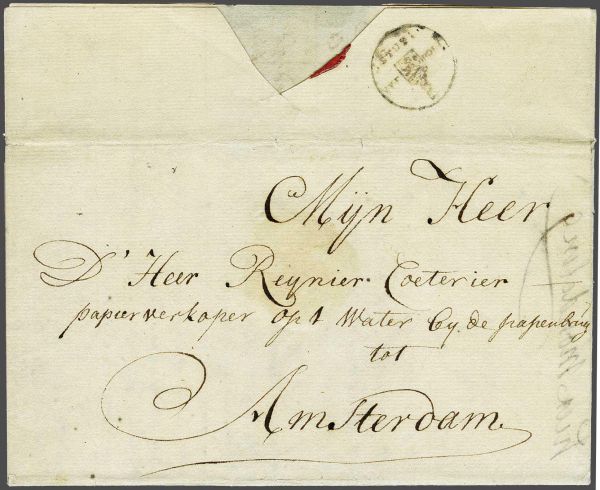 Mijn Heer
D' Heer Reynier Coeterier
papierverkoper op t Water by de papenbrug
tot
Amsterdam